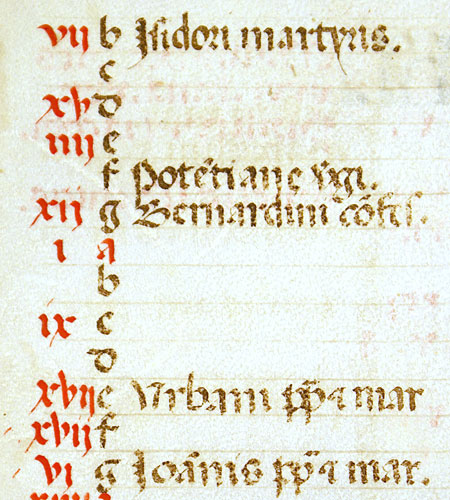 vij b Isidori martyris.
c
xv d
iiij e
f Potētiane v̄gi.
xij g Bernardini cōfes.
i a
b
ix c
d
xvij e Vrbani pp̄ ⁊ mar
xvij f
vi g Ioānis pp̄ ⁊ mar.